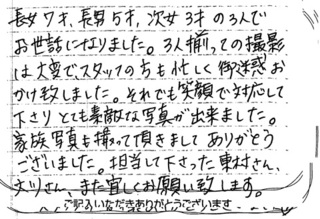 長女7才、長男5才、次女3才の3人で
お世話になりました。3人揃っての撮影
は大変で、スタッフの方も忙しく御迷惑お
かけ致しました。それでも笑顔で対応して
下さりとても素敵な写真が出来ました。
家族写真も撮って頂きましてありがとう
ございました。担当して下さった東村さん、
さん、また宜しくお願い致します。
ご記入いただきありがとうございます